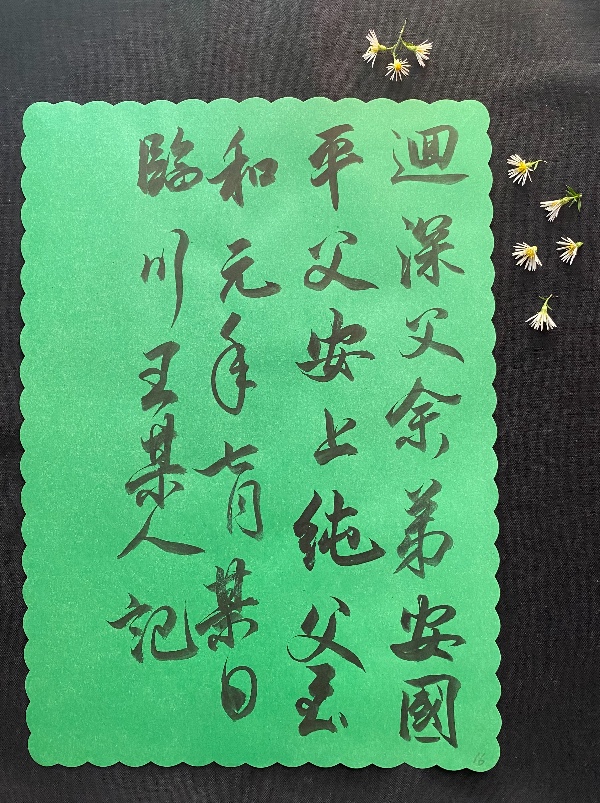 迴深父余弟安國
平父安上純父至
和元年七月某日
臨川王某人記
16